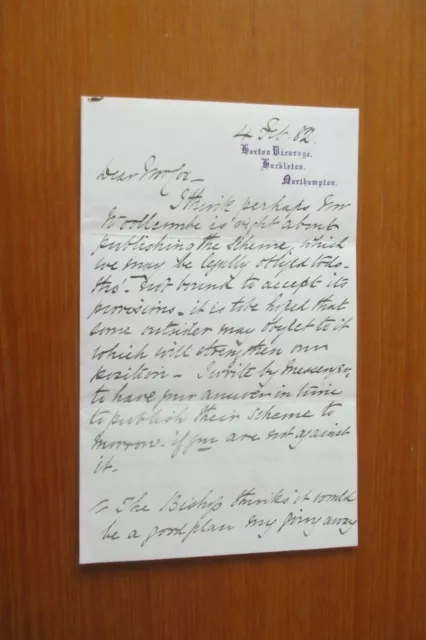 4 Feb. 82.
Horton Vicarage,
Hackleton,
Northampton.
Dear Mr Cox—
I think perhaps Mr
Woollcombe is right about
publishing the scheme, which
we may be legally obliged to do—
tho' not bound to accept its
provisions— it is to be hoped that
some outsider may object to it
which will strengthen our
position— I write by Messenger
to have your answer in time
to publish their scheme to
morrow— if you are not against
it.
The Bishop thinks it would
be a good plan my going away